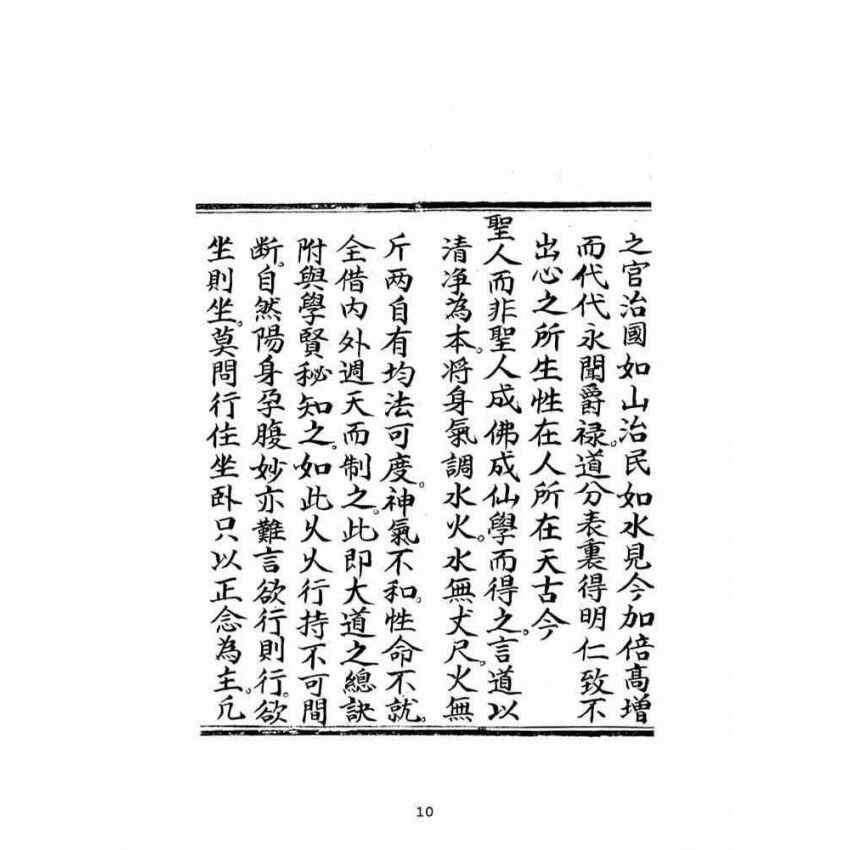 之官治國如山治民如水見今加倍髙增
而代代永聞爵禄。道分表裏得明仁致不
出心之所生性在人所在天古今
聖人而非聖人成佛成仙學而得之。言道以
清净為本。将身氣調水火。水無丈尺。火無
斤两自有均法可度。神氣不和。性命不就。
全借内外週天而制之。此即大道之總訣
附與學賢秘知之。如此乆乆行持不可間
断。自然陽身孕腹妙亦難言欲行則行。欲
坐則坐。莫問行住坐卧只以正念為主。凢
10